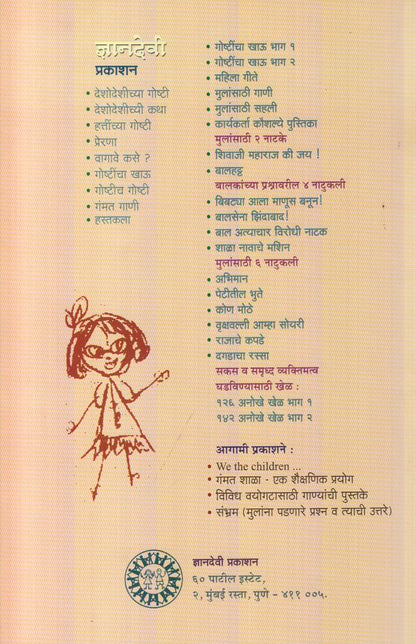 ज्ञानदेवी
प्रकाशन
• देशोदेशीच्या गोष्टी
• देशोदेशीची कथा
• हत्तींच्या गोष्टी
• प्रेरणा
• वागावे कसे ?
• गोष्टींचा खाऊ
• गोष्टीच गोष्टी
• गंमत गाणी
• हस्तकला
• गोष्टींचा खाऊ भाग १
• गोष्टींचा खाऊ भाग २
• महिला गीते
• मुलांसाठी गाणी
• मुलांसाठी सहली
• कार्यकर्ता कौशल्ये पुस्तिका
मुलांसाठी २ नाटके
• शिवाजी महाराज की जय !
• बालहट्ट
बालकांच्या प्रश्नावरील ४ नाटुकली
• बिबट्या आला माणूस बनून!
• बालसेना झिंदाबाद!
• बाल अत्याचार विरोधी नाटक
• शाळा नावाचे मशिन
मुलांसाठी ६ नाटुकली
• अभिमान
• पेटीतील भुते
• कोण मोठे
• वृक्षवल्ली आम्हा सोयरी
• राजाचे कपडे
• दगडाचा रस्सा
सकस व समृध्द व्यक्तिमत्व
घडविण्यासाठी खेळ :
१२६ अनोखे खेळ भाग १
१४२ अनोखे खेळ भाग २
आगामी प्रकाशने :
• We the children ...
• गंमत शाळा - एक शैक्षणिक प्रयोग
• विविध वयोगटासाठी गाण्यांची पुस्तके
• संभ्रम (मुलांना पडणारे प्रश्न व त्याची उत्तरे)
ज्ञानदेवी प्रकाशन
६० पाटील इस्टेट,
२, मुंबई रस्ता, पुणे - ४११ ००५.